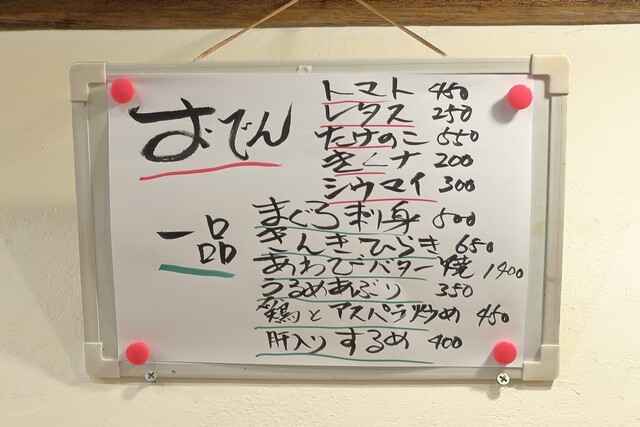 おでん
トマト 450
レタス 250
たけのこ 550
きくな 200
シウマイ 300
一品
まぐろ刺身 500
きんきひらき 650
あわびバター焼 1400
うるめあぶり 350
鶏とアスパラ炒め 450
肝入りするめ 400